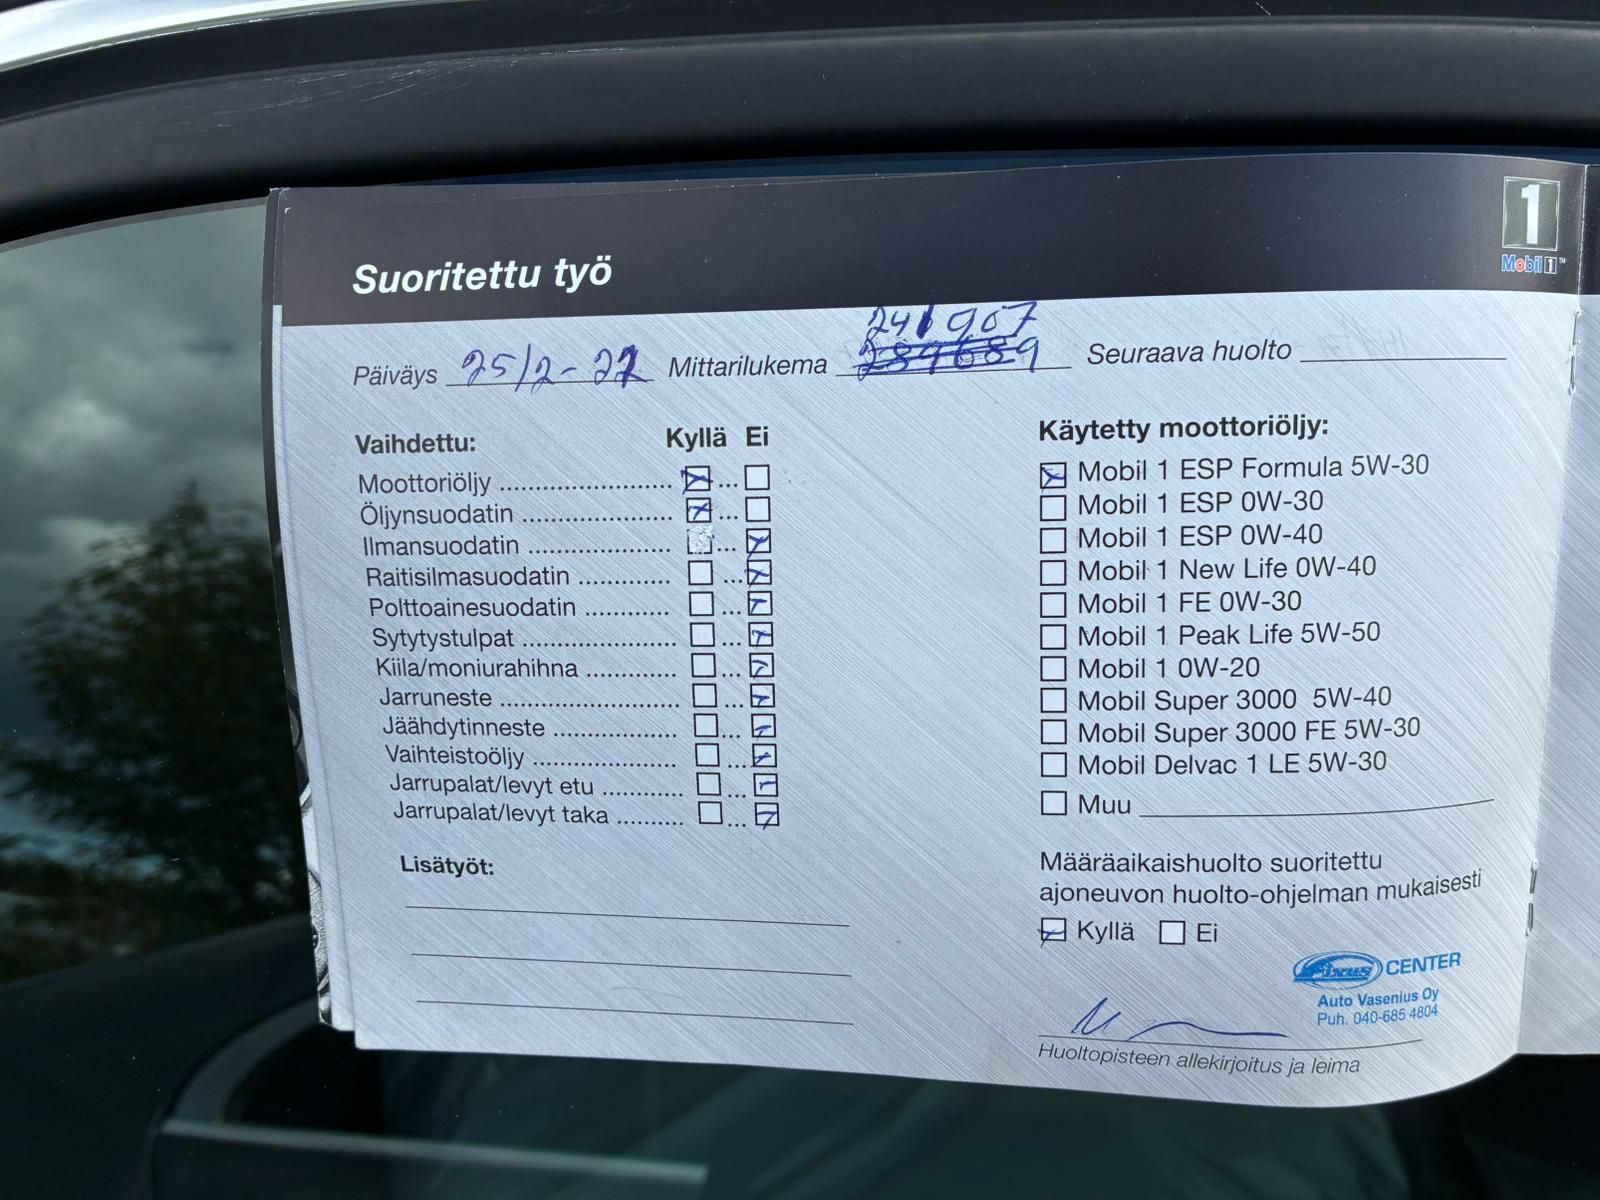 1
Mobil 1™
Suoritettu työ
241907
Päiväys 25/2-22 Mittarilukema 289689 Seuraava huolto
Vaihdettu: Kyllä Ei
Moottoriöljy
Öljynsuodatin
Ilmansuodatin
Raitisilmasuodatin
Polttoainesuodatin
Sytytystulpat
Kiila/moniurahihna
Jarruneste
Jäähdytinneste
Vaihteistoöljy
Jarrupalat/levyt etu
Jarrupalat/levyt taka
Lisätyöt:
Käytetty moottoriöljy:
Mobil 1 ESP Formula 5W-30
Mobil 1 ESP 0W-30
Mobil 1 ESP 0W-40
Mobil 1 New Life 0W-40
Mobil 1 FE 0W-30
Mobil 1 Peak Life 5W-50
Mobil 1 0W-20
Mobil Super 3000 5W-40
Mobil Super 3000 FE 5W-30
Mobil Delvac 1 LE 5W-30
Muu
Määräaikaishuolto suoritettu
ajoneuvon huolto-ohjelman mukaisesti
Kyllä Ei
Fixus CENTER
Auto Vasenius Oy
Puh. 040-685 4804
Huoltopisteen allekirjoitus ja leima